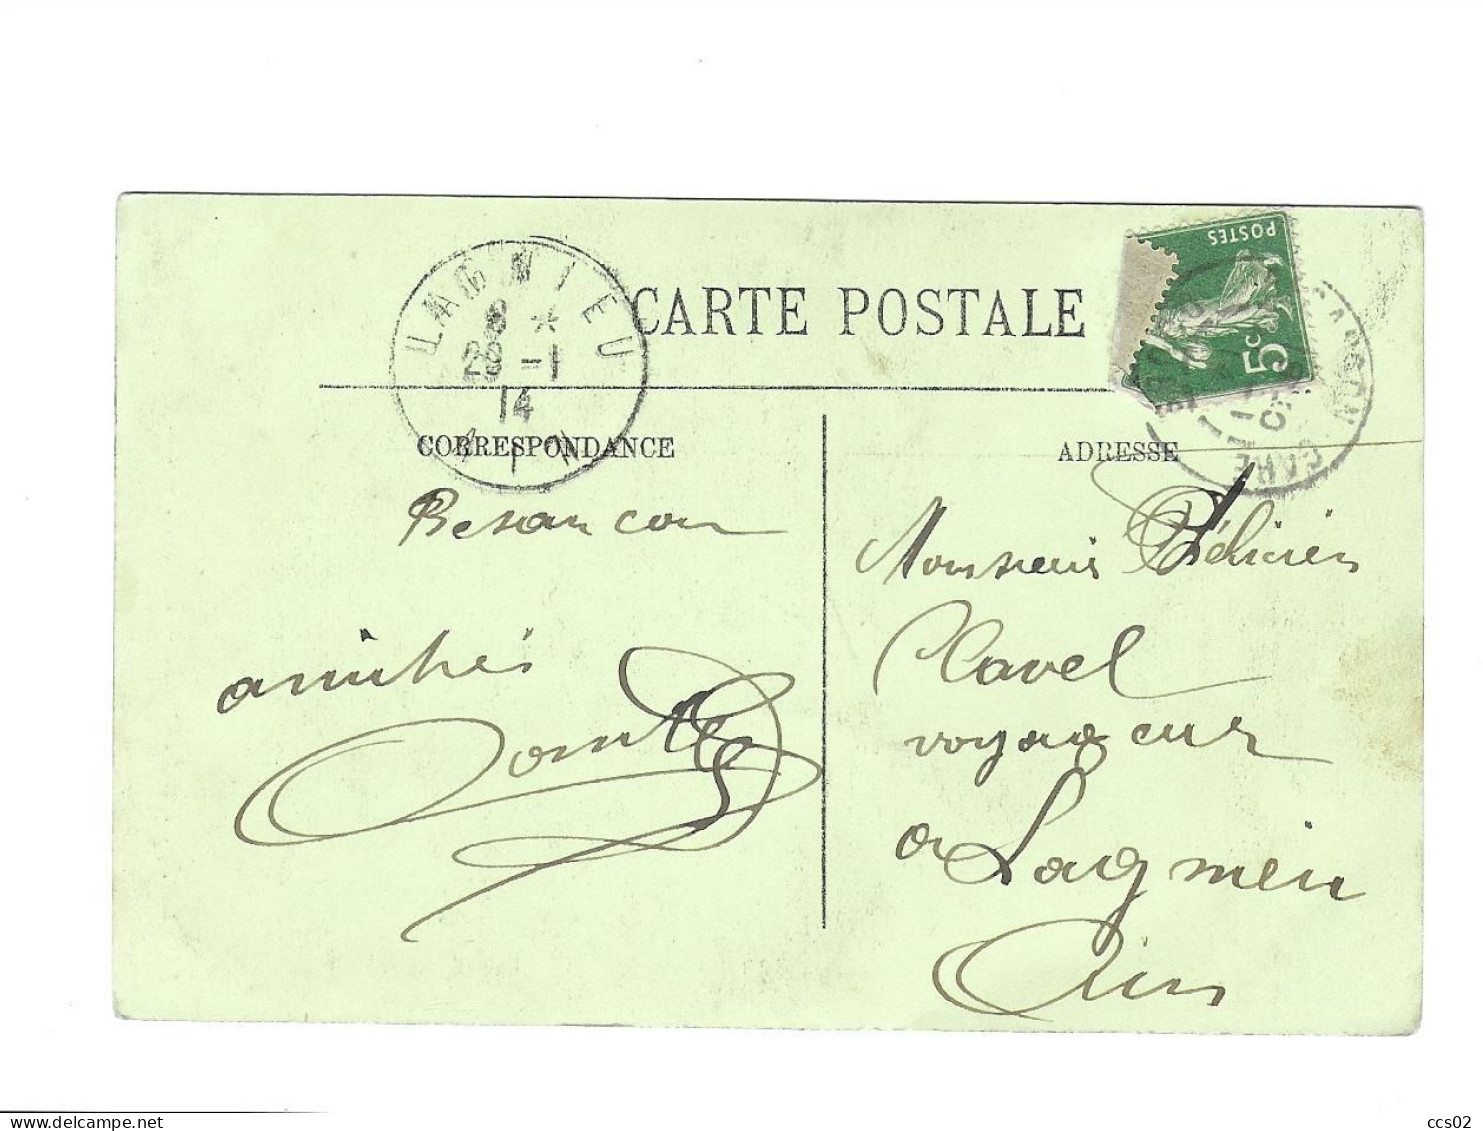 CARTE POSTALE
LAGNIEU
8 *
28 -1
14
AIN
POSTES
5c
GARE
CORRESPONDANCE
ADRESSE
Besancon
amitiés
Monsieur Félicien
Clavel
voyageur
a Lagnieu
Ain
https://www.delcampe.net
ccs02